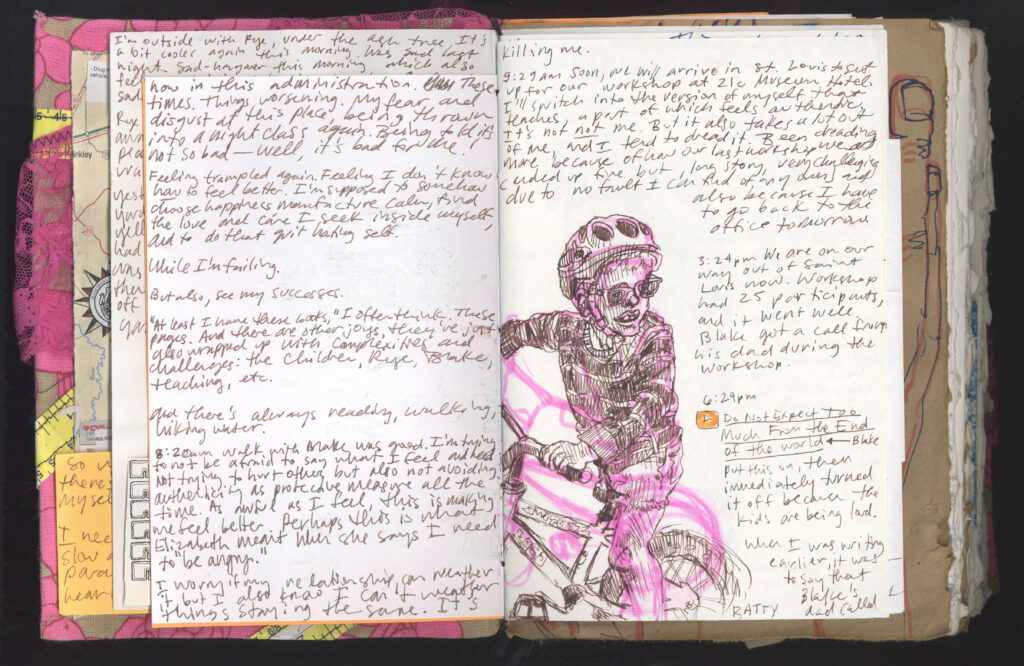 I'm outside with Rye, under the ash tree. It's
a bit cooler again this morning. Was sad last
night. Sad-hangover this morning which also
feel
sad
Rye
and
pla
wra
yest
yard
yell
had
was
ther
off
now in this administration. These
times. Things worsening. My fear and
disgust at this place, being thrown
into a night class again. Being told it's
not so bad — well, it's bad for me!
Feeling trampled again. Feeling I don't know
how to feel better. I'm supposed to somehow
choose happiness, manufacture calm, find
the love and care I seek inside myself,
and to do that quit hating self.
While I'm failing.
But also, see my successes.
"At least I have these books," I often think. These
pages. And there are other joys, they've just
also wrapped up with complexities and
challenges: the children, Rye, Blake,
teaching, etc.
And there's always reading, walking,
hiking, water.
8:20am walk with Blake was good. I'm trying
to not be afraid to say what I feel and need
Not trying to hurt other, but also not avoiding
authenticity as protective measure all the
time. As awful as I feel, this is making
me feel better. Perhaps this is what
Elizabeth meant when she says I need
to be angry."
I worry if my relationship can weather
it but I also know I can't weather
things staying the same. It's
So w
theres
myse
I nee
slow d
para
hear
killing me.
9:29am Soon, we will arrive in St. Louis to set
up for our workshop at 21c Museum Hotel.
I'll switch into the version of myself that
teaches, a part of which feels authentic,
It's not not me. But it also takes a lot out
of me, and I tend to dread it. Been dreading
more because of how our last workshop went
ended up fine but, long story, very challenging
due to no fault I can find of my own, and
also because I have
to go back to the
office tomorrow
3:29pm We are on our
way out of Saint
Louis now. Workshop
had 25 participants,
and it went well.
Blake got a call from
his dad during the
workshop.
6:29pm
Do Not Expect Too
Much From the End
of the World ← Blake
put this on, then
immediately turned
it off because the
kids are being loud.
When I was writing
earlier, it was
to say that
Blake's
dad called
RATTY